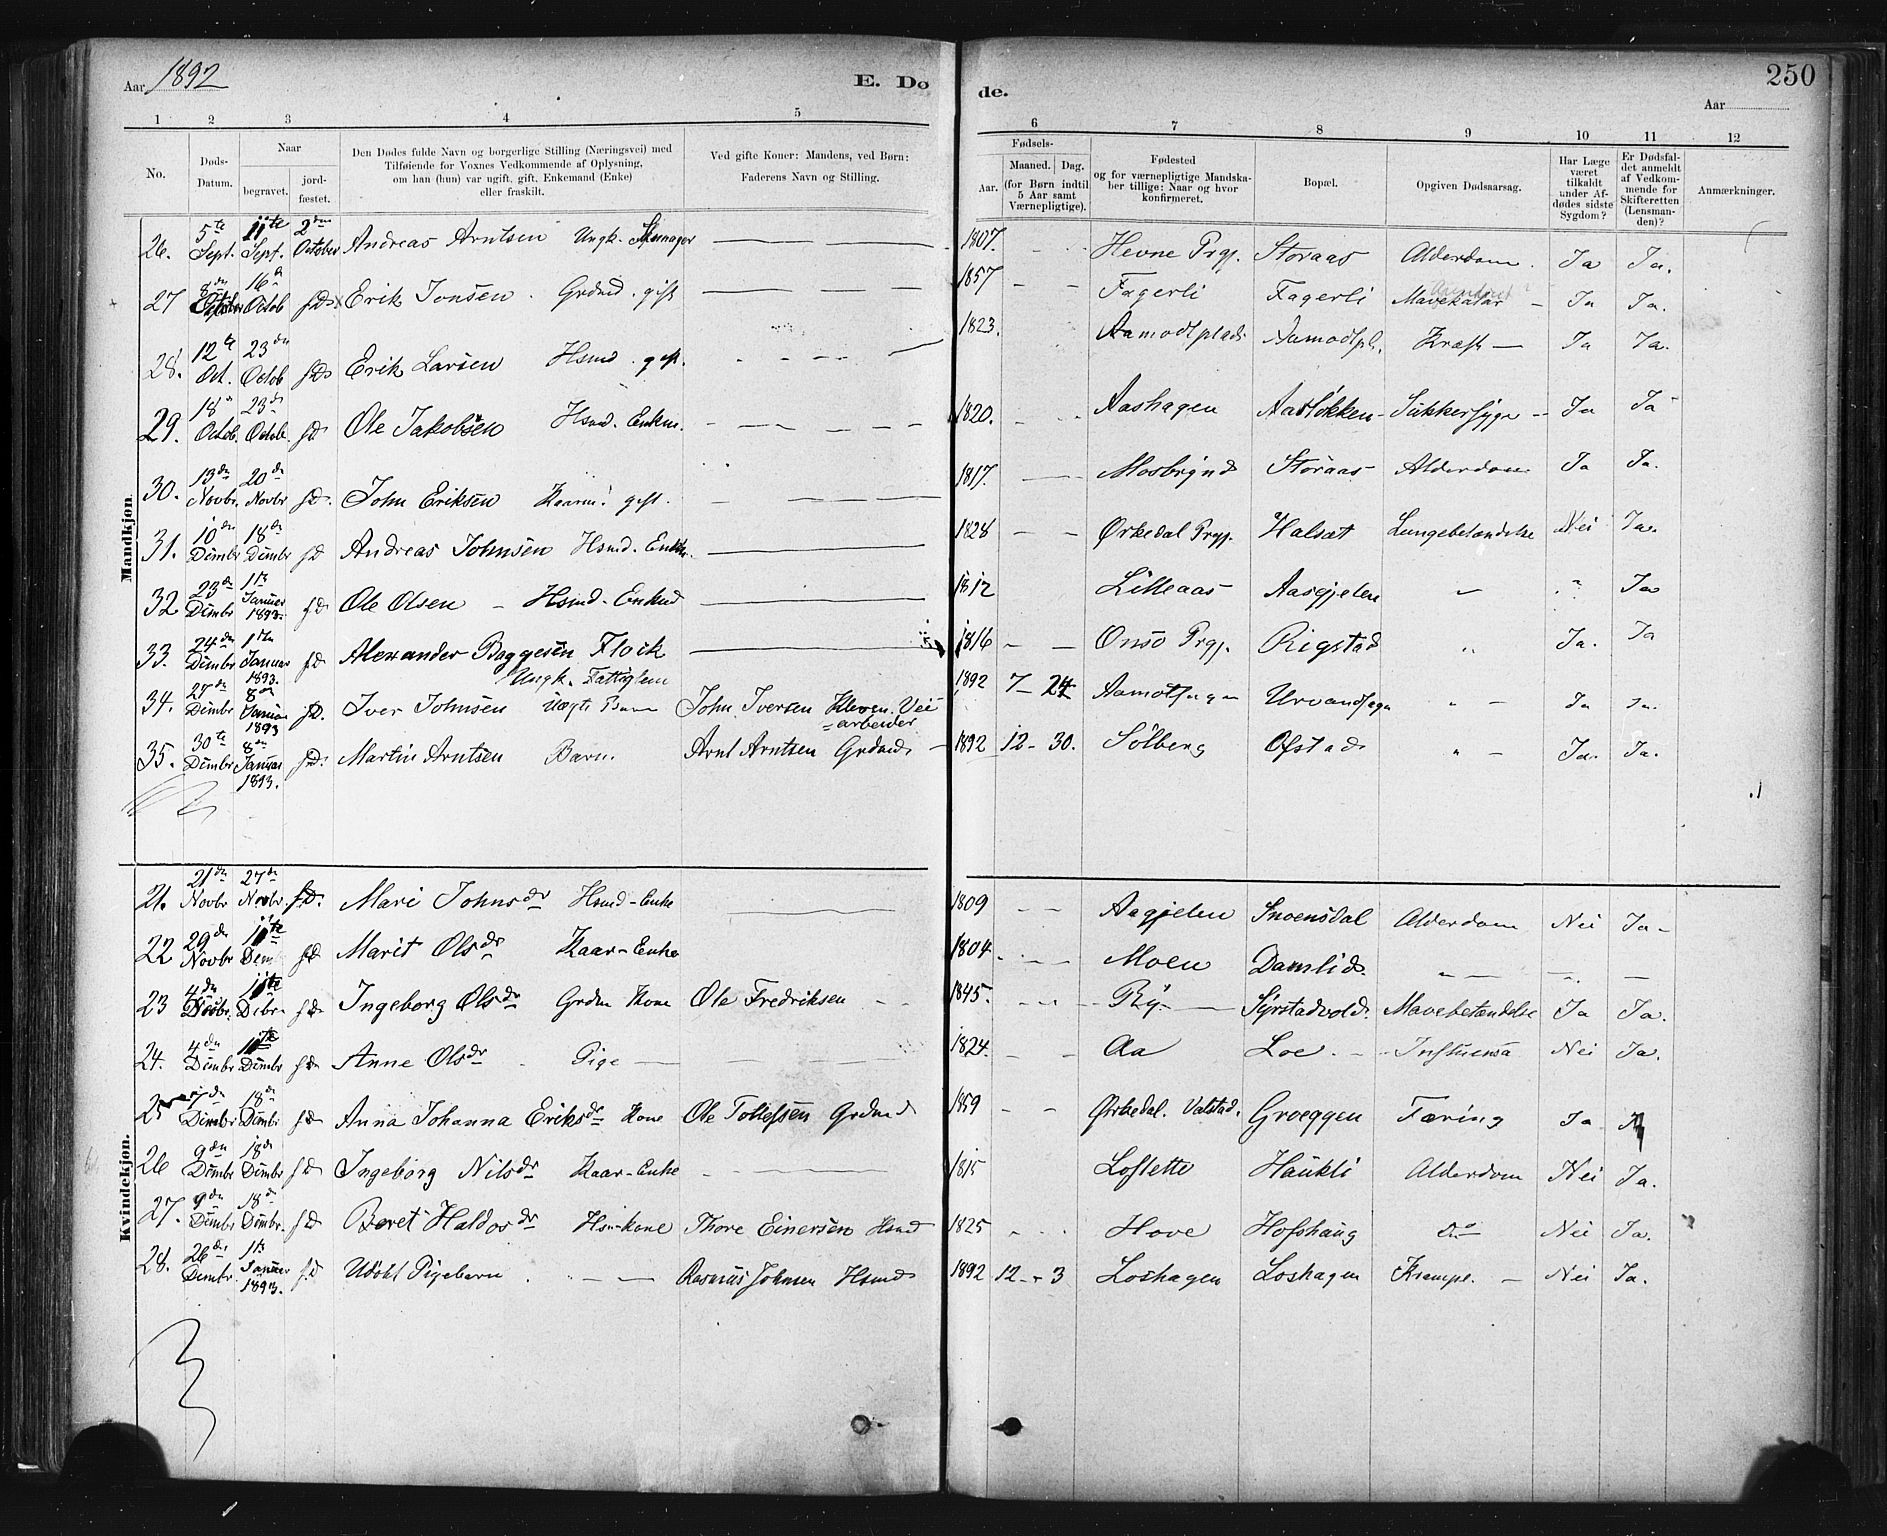 Aar 1892
E. Dø
de.
250
Aar
1 2 3 4 5 6 7 8 9 10 11 12
No.
Døds-
Datum.
Naar
begravet.
jord-
fæstet.
Den Dødes fulde Navn og borgerlige Stilling (Næringsvei) med
Tilføiende for Voxnes Vedkommende af Oplysning,
om han (hun) var ugift, gift, Enkemand (Enke)
eller fraskilt.
Ved gifte Koner: Mandens, ved Børn:
Faderens Navn og Stilling.
Fødsels-
Aar. Maaned. Dag.
(for Børn indtil
5 Aar samt
Værnepligtige).
Fødested
og for værnepligtige Mandska-
ber tillige: Naar og hvor
konfirmeret.
Bopæl.
Opgiven Dødsaarsag.
Har Læge
været
tilkaldt
under Af-
dødes sidste
Sygdom?
Er Dødsfal-
det anmeldt
af Vedkom-
mende for
Skifteretten
(Lensman-
den)?
Anmærkninger.
Mandkjøn.
26. 5te Sept. 11te Sept. 2den October Andreas Arntsen Ungk. Skomager 1807. Hevne Prgj. Storaas Alderdom. Ja Ja.
27 8de 16de Octob s.D. Erik Jonsen. Grdmd. gift 1857 Fagerli Fagerli Mavekatar Ja Ja.
28. 12te Oct. 23de Octob s.D. Erik Larsen Hsmd. gift. 1823. Aamodtplads Aamodtpl. Kræft Ja Ja.
29. 18de Octob. 23de Octob. s.D. Ole Jakobsen Hsmd. Enkm. 1820. Aashagen Aasløkken Sukkersyge Ja Ja
30. 13de Novbr. 20de Novbr s.D. John Eriksen Kaarm. gift. 1817. Mosbrynd Storaas Alderdom Ja Ja.
31. 10de Dimbr 18de Dimbr s.D Andreas Johnsen Hsmd. Enkm. 1828 Ørkedal Prgj. Halsæt Lungebetændelse Nei Ja.
32 23de Dimbr 1ste Januar 1893. s.D Ole Olsen Hsmd. Enkmd 1812 Lilleaas Aasgjelen " " Ja
33. 24de Dimbr 1ste Januar 1893. s.D Alexander Baggesen Flock Ungk. Fattiglem 1816 Onsø Prgj. Rigstad " Ja. Ja
34. 27de Dimbr 8de Januar 1893 s.D. Iver Johnsen Uægte Barn John Iversen Kleven. Vei-arbeider 1892 7 24 Aamothagen Urvandhagn " Ja Ja.
35. 30te Dimbr 8de Januar 1893. s.D. Martin Arntsen Barn. Arnt Arntsen Grdmd. 1892 12 30. Sølberg Ofstad " Ja. Ja.
Kvindekjøn.
21. 21de Novbr 27de Novbr. s.D. Mari Johnsdr Hsmd-Enke 1809 Aagjelen Snoensdal Alderdom Nei Ja
22 29de Novbr 11te s.D Marit Olsdr Kaar-Enke 1804. Moen Damlid. " "
23 4de 11te Debr. s.D Ingeborg Olsdr Grdm Kone Ole Fredriksen 1845. Ry. Syrstadvold. Mavebetændelse Ja Ja.
24. 4de Dimbr 11te Dimbr s.D Anne Olsdr Pige 1824. Aa Loe. Influensa Nei Ja.
25 7de Dimbr 18de Dimbr s.D Anna Johanna Eriksdr Kone Ole Tollefsen Grdmd 1859 Ørkedal. Valstad. Groeggen Tæring Ja
26 9de Dimbr 18de Dimbr. s.D Ingeborg Nilsdr Kaar-Enke 1815 Loslette Haukli Alderdom Nei Ja.
27. 9de Dimbr 18de Dimbr. s.D Beret Haldosdr Hsm-kone Thore Einersen Hsmd 1825 Hove Hofshaug Do Nei Ja.
28. 26de Dimbr. 1ste Januar 1893. s.D Udøbt Pigebarn Rasmus Johnsen Hsmd. 1892 12 3 Loshagen Loshagen Krampe. Nei Ja.